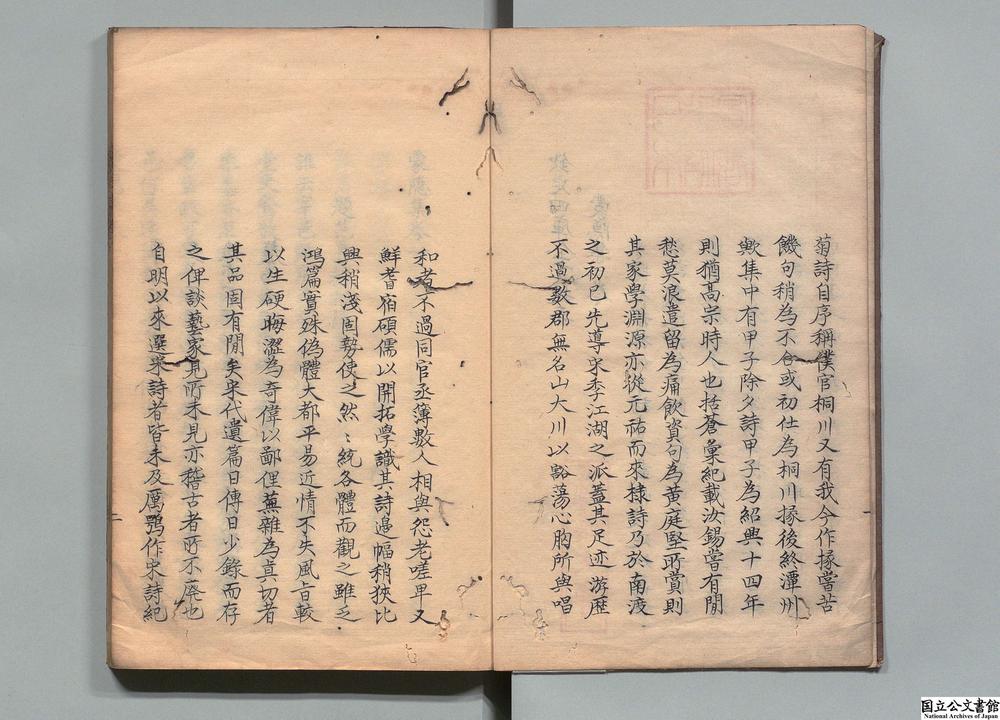 菊詩自序稱僕官桐川又有我今作掾嘗苦
饑句稍為不合或初仕為桐川掾後終潭州
歟集中有甲子除夕詩甲子為紹興十四年
則猶高宗時人也括蒼彙紀載汝錫嘗有閒
愁莫浪遣留為痛飲資句為黄庭堅所賞則
其家學淵源亦從元祐而來棣詩乃於南渡
之初已先導宋季江湖之派蓋其足迹游歷
不過數郡無名山大川以豁蕩心胸所與唱
和者不過同官丞簿數人相與怨老嗟卑又
鮮耆宿碩儒以開拓學識其詩邊幅稍狹比
興稍淺固勢使之然〻統各體而觀之雖乏
鴻篇實殊偽體大都平易近情不失風旨較
以生硬晦澀為奇偉以鄙俚蕪雜為真切者
其品固有閒矣宋代遺篇日傳日少錄而存
之俾談藝家見所未見亦稽古者所不廢也
自明以來選宋詩者皆未及厲鶚作宋詩紀
国立公文書館
National Archives of Japan